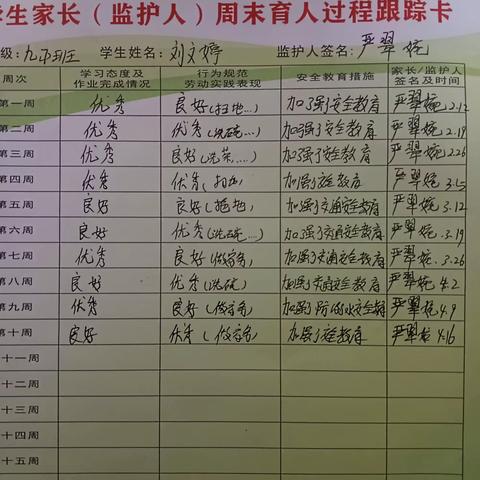 学生家长（监护人）周末育人过程跟踪卡
级：九 班 学生姓名：刘文婷 监护人签名：严翠婉
周次 学习态度及作业完成情况 行为规范劳动实践表现 安全教育措施 家长/监护人签名及时间
第一周 优秀 良好(扫地…) 加强了安全教育 严翠婉 2.12
第二周 优秀 优秀(洗碗…) 加强了安全教育 严翠婉 2.19
第三周 优秀 良好(洗菜…) 加强了安全教育 严翠婉 2.26
第四周 优秀 优秀(扫地) 加强了安全教育 严翠婉 3.5
第五周 良好 良好(拖地) 加强了交通安全教育 严翠婉 3.12
第六周 良好 优秀(洗碗…) 加强了交通安全教育 严翠婉 3.19
第七周 优秀 良好(做家务) 加强了交通安全教育 严翠婉 3.26
第八周 良好 优秀(洗碗) 加强了交通安全教育 严翠婉 4.2
第九周 优秀 良好(做家务) 加强了防溺水安全教育 严翠婉 4.9
第十周 良好 优秀(做家务) 加强了安全教育 严翠婉 4.16
十一周
十二周
十三周
十四周
十五周